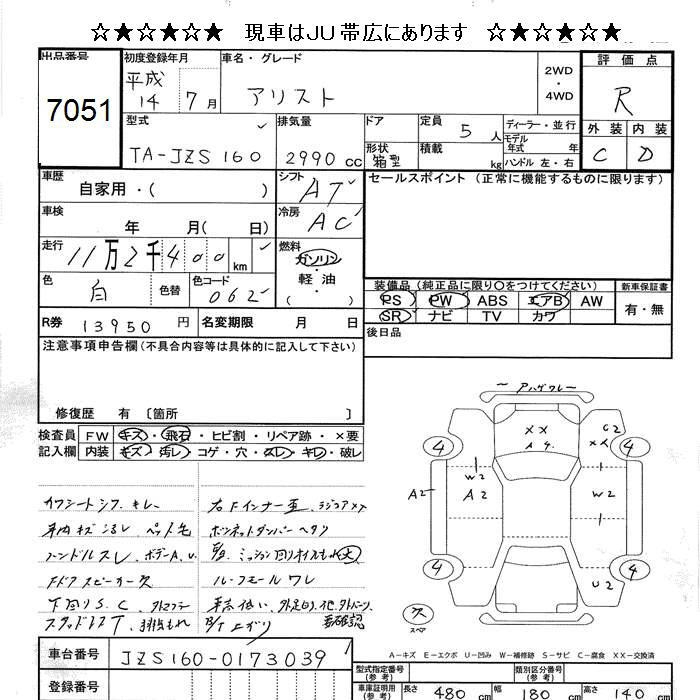 ☆★☆★☆★ 現車はJU帯広にあります ☆★☆★☆★
出品番号 7051
初度登録年月 平成 14 7月
車名・グレード アリスト
2WD・4WD
評価点 R
外装 内装
C D
型式 TA-JZS160
排気量 2990 cc
ドア
形状 箱型
定員 5 人
積載 kg
ディーラー・並行
モデル年式 年
ハンドル 左・右
車歴 自家用・( )
シフト AT
セールスポイント (正常に機能するものに限ります)
車検 年 月( 日)
冷房 AC
走行 11万2千400 km
燃料 ガソリン・軽・油 ( )
色 白 色替 色コード 062
装備品 (純正品に限り○をつけてください)
新車保証書
PS PW ABS エアB AW
有・無
SR ナビ TV カワ
R券 13950 円 名変期限 月 日
後日品
注意事項申告欄 (不具合内容等は具体的に記入して下さい)
修復歴 有 〔箇所 〕
検査員 FW キズ・飛石・ヒビ割・リペア跡・×要
記入欄 内装 キズ・汚レ・コゲ・穴・スレ・キレ・破レ
カワシートシワ キレ
ハンドルスレ ボデーA、U
FドアスピーカーX
下回りS.C
右Fインナー歪
ボンネットダンパーヘタリ
ルーフモールワレ
車高低い
要確認
アハゲワレ
XX
A9
C2
XX
4
4
W2
A2
A2
W2
4
4
U2
スペア
A-キズ E-エクボ U-凹み W-補修跡 S-サビ C-腐食 XX-交換済
車台番号 JZS160-0173039
登録番号
型式指定番号 (参考)
類別区分番号 (参考)
車庫証明用 (参考) 長さ 480 cm 幅 180 cm 高さ 140 cm